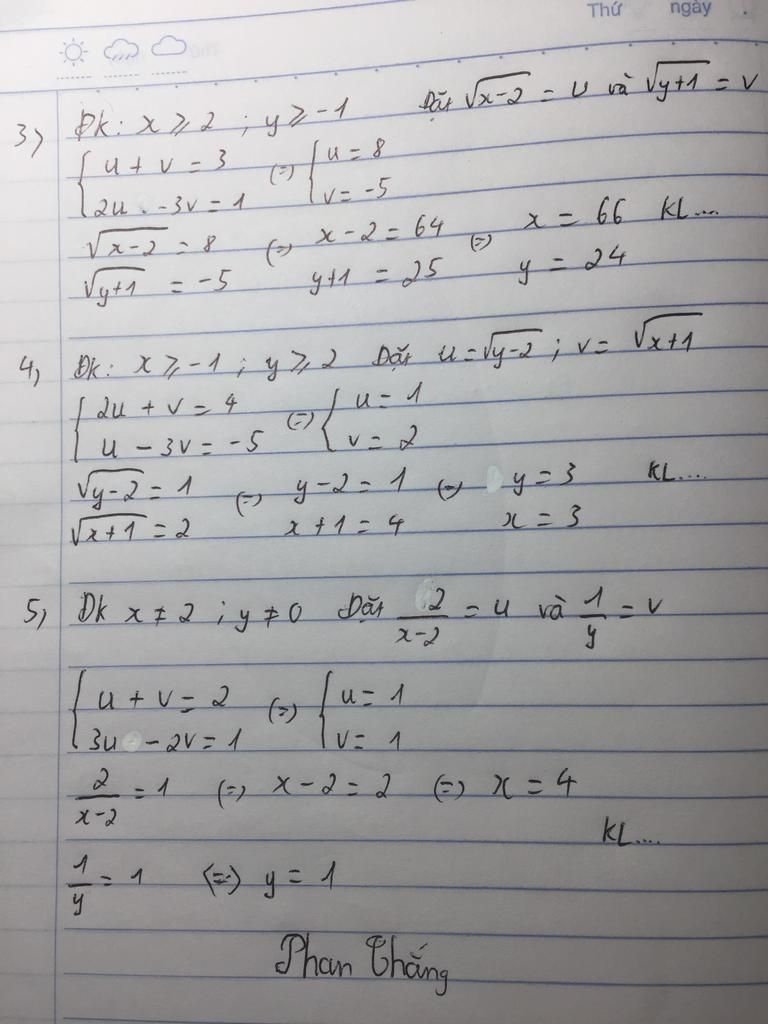 Thứ ngày
3) Đk: x ≥ 2 ; y ≥ -1 Đặt √(x-2) = u và √(y+1) = v
{ u + v = 3 (=) { u = 8
2u - 3v = 1 v = -5
√(x-2) = 8 (=) x - 2 = 64 (=) x = 66 KL....
√(y+1) = -5 y+1 = 25 y = 24
4) Đk: x ≥ -1 ; y ≥ 2 Đặt u = √(y-2) ; v = √(x+1)
{ 2u + v = 4 (=) { u = 1
u - 3v = -5 v = 2
√(y-2) = 1 (=) y - 2 = 1 (=) y = 3 KL....
√(x+1) = 2 x + 1 = 4 x = 3
5) Đk x ≠ 2 ; y ≠ 0 Đặt 2/(x-2) = u và 1/y = v
{ u + v = 2 (=) { u = 1
3u - 2v = 1 v = 1
2/(x-2) = 1 (=) x - 2 = 2 (=) x = 4
KL....
1/y = 1 (=) y = 1
Phan Thắng